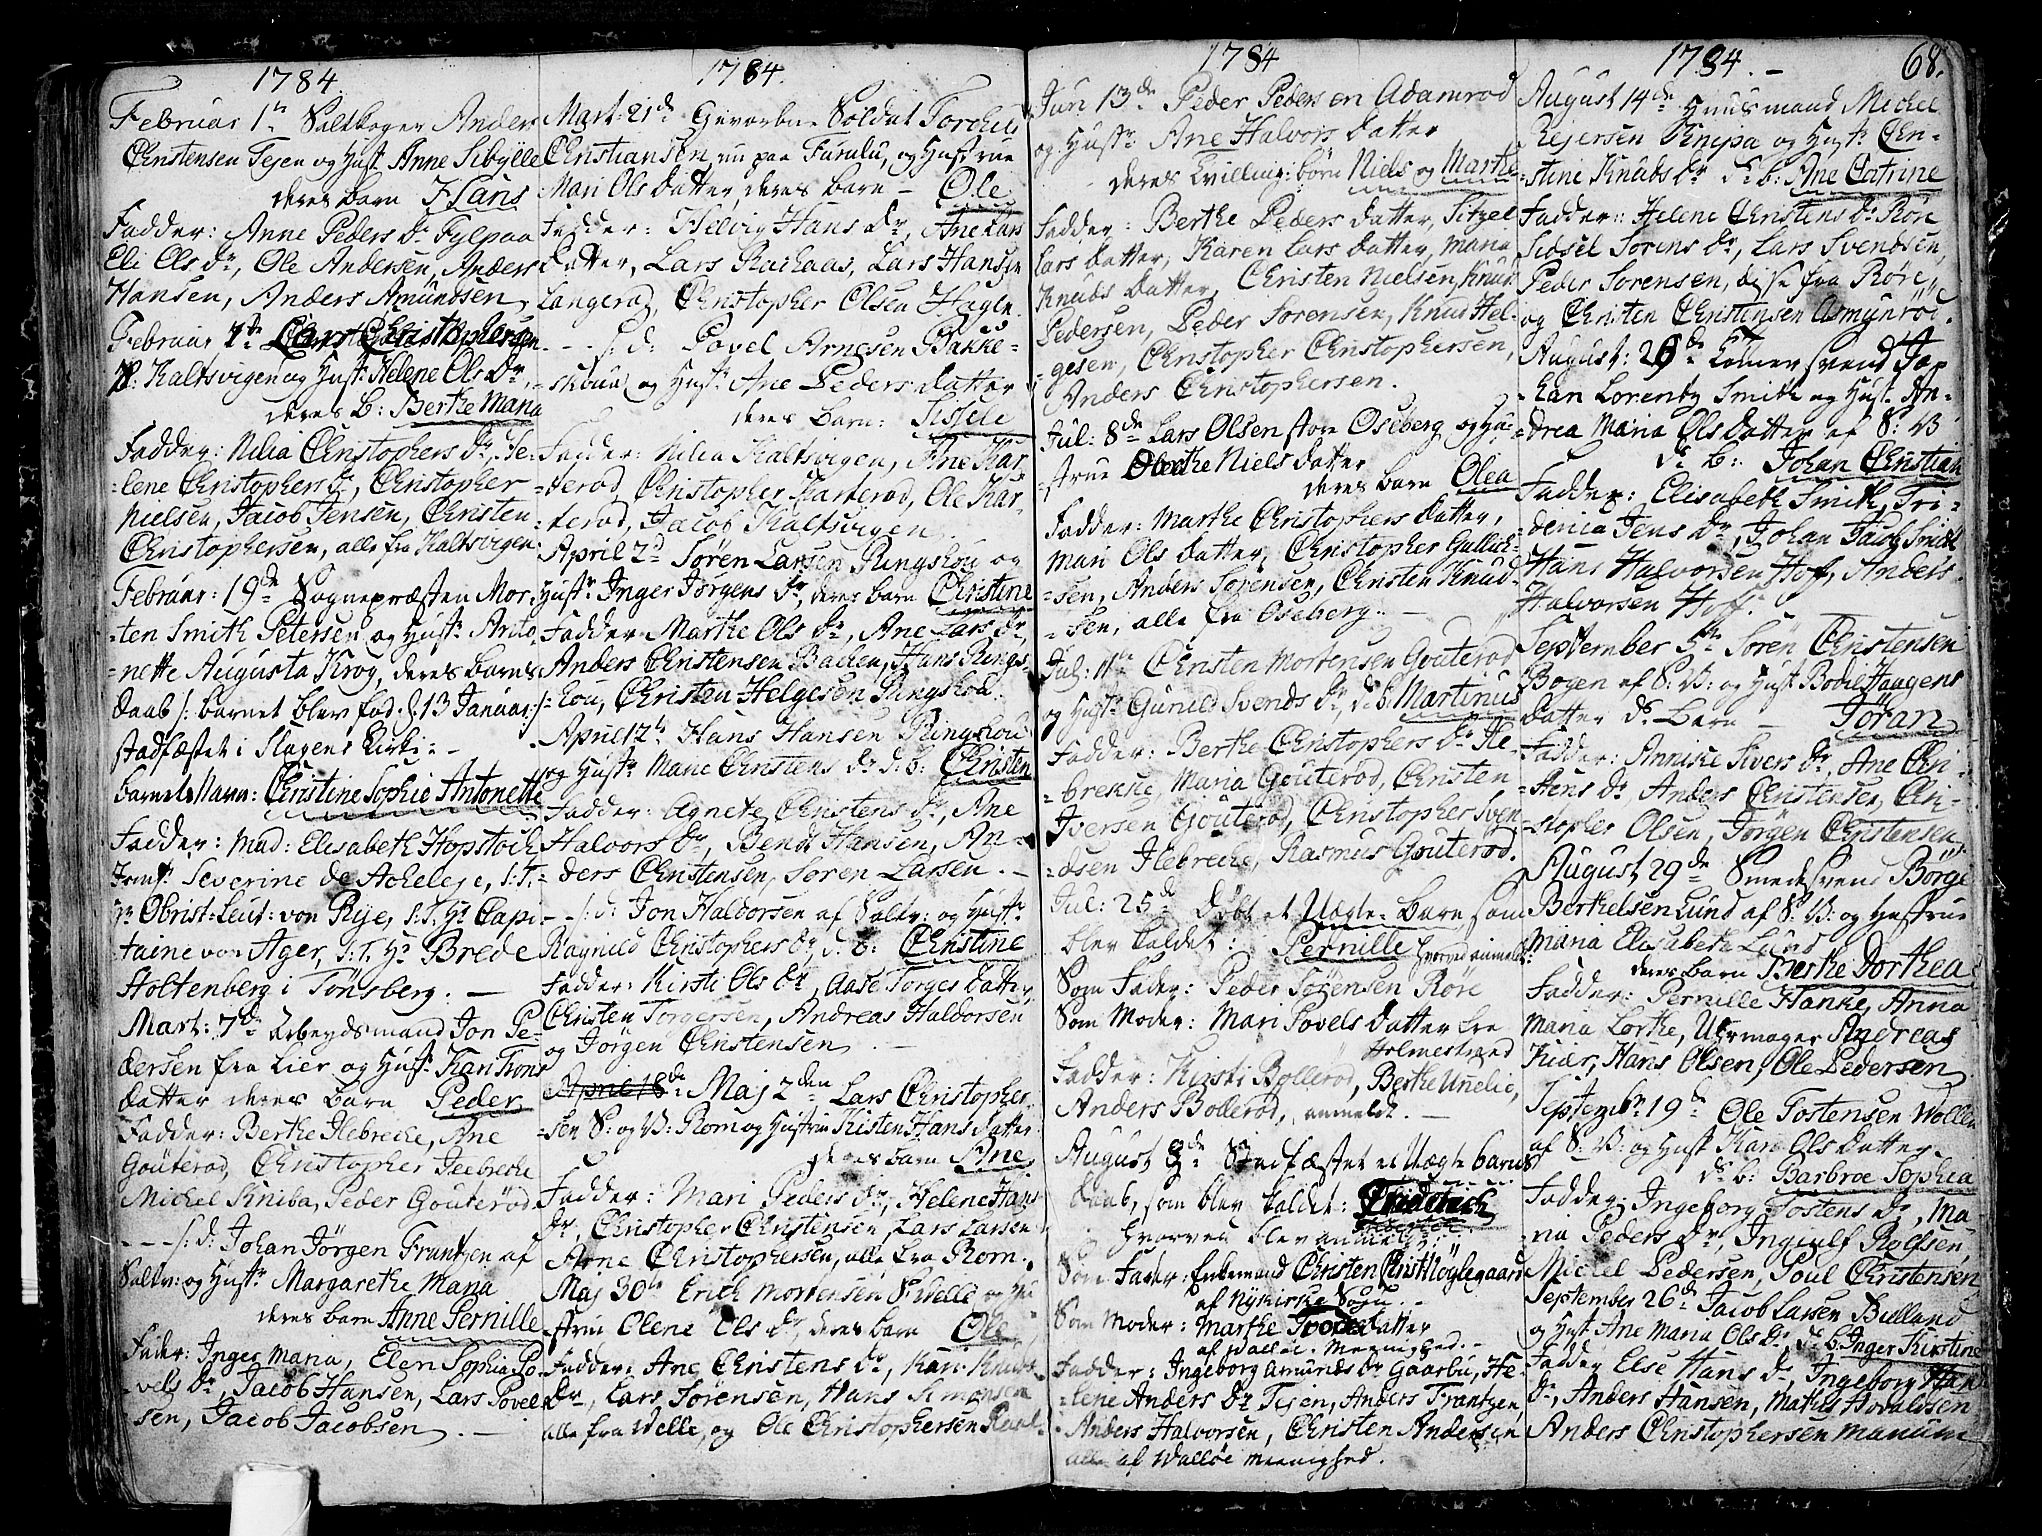 1784.
Februar 1te Saltkoger Anders
Christensen Tejen og Hust. Anne Sibylle
deres barn Hans
Fadder: Anne Peders Dr Fylpaa
Eli Ols Dr, Ole Andersen, Anders
Hansen, Anders Amundsen,
Februar 7de Lars Christophersen
Kaltsvigen og Hust: Helene Ols Dr,
deres b: Berthe Maria
Fadder: Nilia Christophers Dr, He-
-lene Christophers Dr, Christopher
Nielsen, Jacob Jensen, Christen
Christophersen, alle fra Kaltsvigen
Februar: 19de Sognepræsten Mor-
-ten Smith Petersen og Hustr Anto-
-nette Augusta Krog, deres barns
daab /: barnet blev fød d. 13 Januar :/
stadfæstet i Slagens Kirke: -
barnets Navn: Christine Sophie Antonette
Fadder: Mad: Elisabeth Hopstock
Jomfr Severine de Acheleje, S:T:
Hr Obrist-Leut: von Rÿe, S:T: Hr Capi-
taine von Ager, S:T: Hr Brede
Stoltenberg i Tönsberg. -
Mart: 7de Arbeydsmand Jon Pe-
dersen fra Lier og Hust. Kari Trons
datter deres barn Peder
Fadder: Berthe Ilebreche, Ane
Gouterød, Christopher Ilebreche
Michel Kniba, Peder Gouterød.
- - - /: d: Johan Jörgen Frantzen af
Saltv: og Hustr Margarethe Maria
deres barn Anne Pernille
Fader: Inger Maria, Elen Sophia Po-
vels Dr, Jacob Hansen, Lars Povel-
sen, Jacob Jacobsen. -
1784.
Mart: 21de Gevorbne Soldat Torchel
Christiansen, nu paa Furulu, og Hustrue
Mari Ols datter, deres barn - Ole
Fadder: Helvig Hans Dr, Ane Lars
datter, Lars Rachaas, Lars Hansen
Langerød, Christopher Olsen Hagen.
- - - /: d: Povel Arnesen Bakke-
-skouu og Hustr Ane Peders datter
deres barn: Sissele
Fadder: Nilia Kaltsvigen, Ane Kar-
-terød, Christopher Karterød, Ole Kar-
-terød, Jacob Kaltsvigen.
April 2d Søren Larsen Ringshou og
Hustr Inger Jørgens Dr, deres barn Christine
Fadder: Marthe Ols Dr, Ane Lars Dr
Anders Christensen Bachen, Hans Rings-
-hou, Christen Helgesen Ringshou.
April 12te Hans Hansen Ringshou
og Hustr Marie Christens Dr d: b: Christen
Fadder: Agnete Christens Dr, Ane
Halvors Dr, Bendt Hansen, An-
-ders Christensen, Søren Larsen. -
- - /: d: Jon Haldorsen af Saltv: og Hustr
Ragnild Christophers Dr, d: b: Christine
Fadder: Kirsti Ols Dr, Aase Torges datter,
Christen Torgersen, Andreas Haldorsen
og Jörgen Christensen. -
April 18de: Maj 2den Lars Christopher-
-sen S: og V: Rom og Hustrue Kisten Hans datter
deres barn Ane
Fadder: Mari Peders Dr, Helene Hans
Dr, Christopher Christensen, Lars Larsen
Arne Christophersen, alle fra Rom.
Maj 30te Erich Mortensen S: Welle og Hu-
strue Olene Ols Dr, deres barn Ole
Fadder: Ane Christens Dr, Kari Knuds
Dr, Lars Sørensen, Hans Simonsen
alle fra Welle, og Ole Christophersen
1784
Jun: 13de Peder Pedersen Adamrød
og Hustr Ane Halvors datter
deres tvilling: börn Niels og Marthe
Fadder: Berthe Peders datter, Sitzel
Lars datter, Karen Lars datter, Maria
Knuds datter, Christen Nielsen, Knud
Pedersen, Peder Sørensen, Knud Hel-
-gesen, Christopher Christophersen,
Anders Christophersen.
Jul: 8de Lars Olsen store Oseberg og Hu-
-strue Berthe Niels datter
deres barn Olea
Fadder: Marthe Christophers datter,
Mari Ols datter, Christopher Gullich-
-sen, Anders Sørensen, Christen Knud-
-sen, alle fra Oseberg. -
Jul: 11te Christen Mortensen Gouterød
og Hustr Gunild Svends Dr, d: b: Martinus
Fadder: Berthe Christophers Dr Ile-
-brekke, Maria Gouterød, Christen
Iversen Gouterød, Christopher Sven-
-dsen Ilebreche, Rasmus Gouterød.
Jul: 25de Døbt et Uægte-barn, som
blev kaldet: Pernille hvorved anmeldt:
Som Fader: Peder Sørensen Røre
Som Moder: Mari Povels datter fra
Holmestrand
Fadder: Kirsti Bollerød, Berthe Unelie,
Anders Bollerød, anmeldt. -
August 8de Stadfæstet et Uægte barns
daab, som blev kaldet: Friderich
hvorved blev anmeldt:
Som Fader: Enkemand Christen Christ. Röglegaard
af Nykirke Sogn. -
Som Moder: Marthe Tordsdatter
af Walløe Meenighed. -
Fadder: Ingeborg Amunds Dr Gaarbu, He-
-lene Anders Dr Tejen, Anders Frantzen,
Anders Halvorsen, Christen Andersen
alle af Walløe Meenighed.
1784. -
68.
August 14de Huusmand Michel
Rejersen Knypa og Hustr Chri-
-stine Knuds Dr d: b: Ane Catrine
Fadder: Helene Christens Dr Røre
Sidsel Sørens Dr, Lars Svendsen,
Peder Sørensen, disse fra Røre,
og Christen Christensen Asmyhrød.
August: 26de Tømer svend Jo-
-han Lorentz Smith og Hust. An-
-drea Maria Ols datter af S: V:
d: b: Johan Christian
Fadder: Elisabeth Smith, Fri-
-derica Jens Dr, Johan Jacob Smith
Hans Halvorsen Hof, Anders
Halvorsen Hoff.
September 5te Søren Christensen
Bogen af S: V: og Hust Bodil Haagens
datter ds barn - Jöran
Fadder: Anniche Sivers Dr, Ane Chri-
-stens Dr, Anders Christensen, Chri-
-stopher Olsen, Jørgen Christensen
August 29de Smedesvend Börge
Berthelsen Lund af S: V: og Hustrue
Maria Elisabeth Lund
deres barn Berthe Dorthea
Fadder: Pernille Hanke, Anna
Maria Lorthe, Uhrmager Andreas
Kiær, Hans Olsen, Ole Pedersen
Septembr 19de Ole Tostensen Wollen
af S: V: og Hust Kari Ols datter.
ds b: Barbroe Sophia
Fadder: Ingeborg Tostens Dr, Ma-
-ria Peders Dr, Ingeulf Rolfsen,
Michel Pedersen, Poul Christensen
September 26de Jacob Larsen Bulland
og Hust. Ane Maria Ols Dr, ds b. Inger Kirstine
Fadder Else Hans Dr, Ingeborg Hans
Dr, Anders Hansen, Mathis Hovaldsen
Anders Christophersen Manum